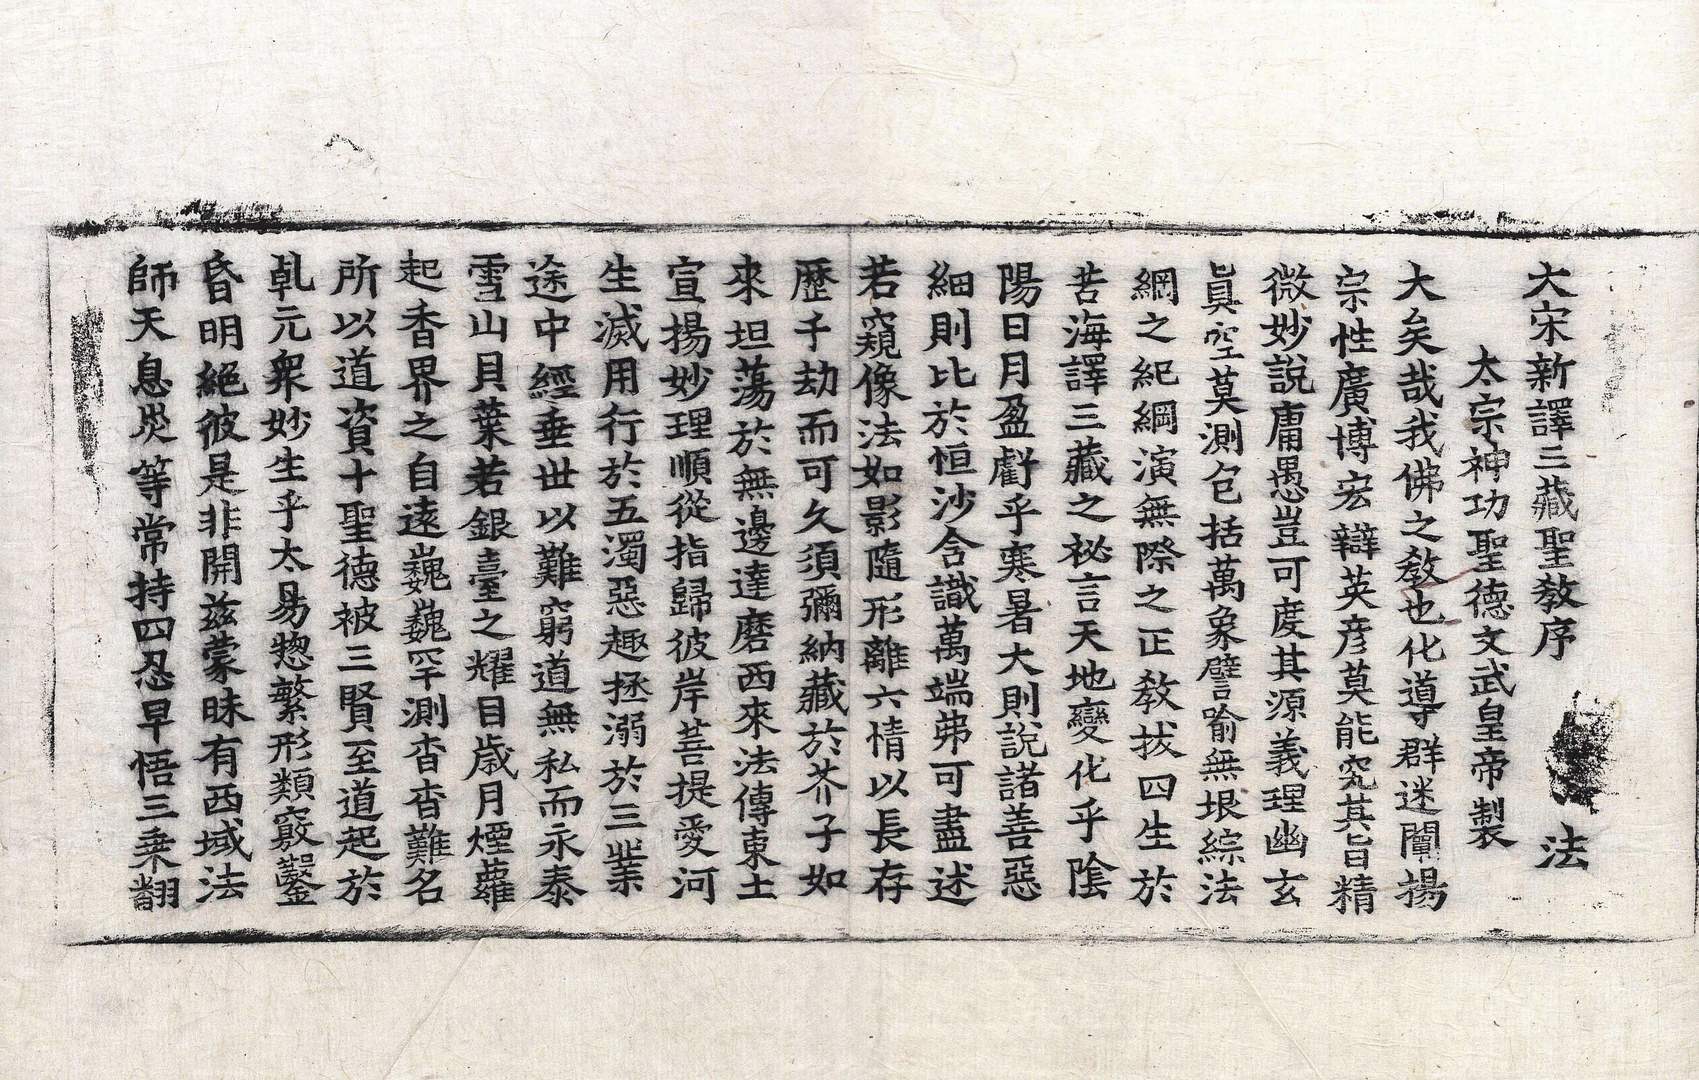 大宋新譯三藏聖教序 法
太宗神功聖德文武皇帝製
大矣哉我佛之教也化導群迷闡揚
宗性廣博宏辯英彦莫能究其旨精
微妙說庸愚豈可度其源義理幽玄
眞空莫測包括萬象譬喻無垠綜法
網之紀綱演無際之正教拔四生於
苦海譯三藏之祕言天地變化乎陰
陽日月盈虧乎寒暑大則說諸善惡
細則比於恒沙含識萬端弗可盡述
若窺像法如影隨形離六情以長存
歷千劫而可久須彌納藏於芥子如
來坦蕩於無邊達磨西來法傳東土
宣揚妙理順從指歸彼岸菩提愛河
生滅用行於五濁惡趣拯溺於三業
途中經垂世以難窮道無私而永泰
雪山貝葉若銀臺之耀目歲月煙蘿
起香界之自遠巍巍罕測杳杳難名
所以道資十聖德被三賢至道起於
乹元衆妙生乎太易惣繁形類竅鑿
昏明絕彼是非開茲蒙昧有西域法
師天息災等常持四忍早悟三乗翻